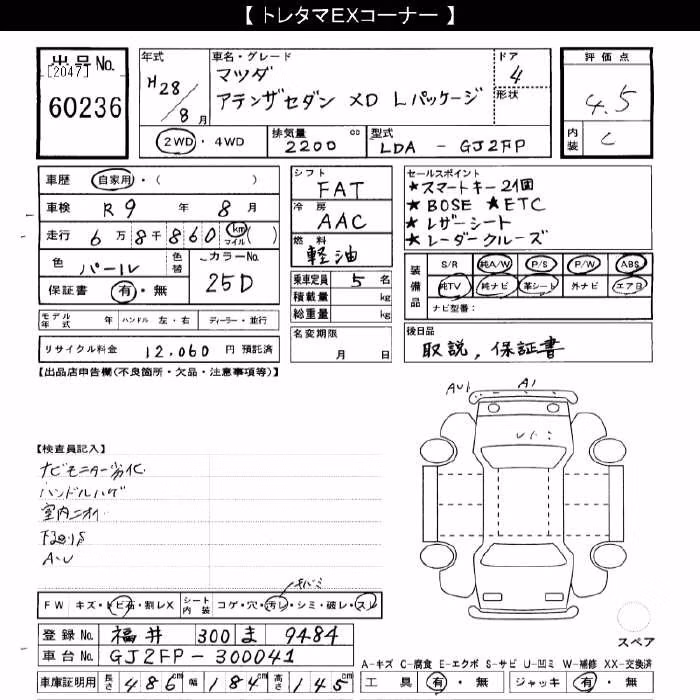 【 トレタマEXコーナー 】
出品No. [2047] 60236
年式 H28/8月
車名・グレード マツダ アテンザセダン XD Lパッケージ
ドア 4 形状
2WD・4WD 排気量 2200 cc 型式 LDA - GJ2FP
評価点 4.5
内装 C
車歴 自家用・( )
車検 R9年 8月
走行 6万8千860 km マイル ( )
色 パール 色替 カラーNo. 25D
保証書 有・無
モデル年式 年 ハンドル 左・右 ディーラー・並行
リサイクル料金 12,060 円 預託済
シフト FAT
冷房 AAC
燃料 軽油
乗車定員 5 名
積載量 kg
総重量 kg
名変期限 月 日
セールスポイント
★スマートキー2個
★BOSE ★ETC
★レザーシート
★レーダークルーズ
装備品 S/R 純A/W P/S P/W ABS
純TV 純ナビ 革シート 外ナビ エアB
ナビ型番:
後日品
取説, 保証書
【出品店申告欄(不良箇所・欠品・注意事項等)】
AU1 A1
【検査員記入】
ナビモニター劣化
ハンドルハゲ
室内ニオイ
A・U
FW キズ・トビ石・割レX シート内装 コゲ・穴・汚レ・シミ・破レ・スレ
登録No. 福井 300 ま 9484
車台No. GJ2FP-300041
車庫証明用 長さ 486cm 幅 184cm 高さ 145cm
スペア
A-キズ C-腐食 E-エクボ S-サビ U-凹ミ W-補修 XX-交換済
工具 有・無 ジャッキ 有・無